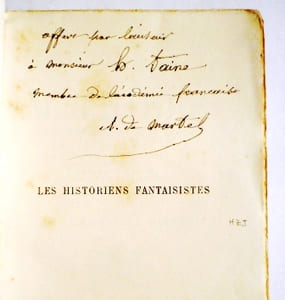 offert par l'auteur
à monsieur h. taine
membre de l'académie française
t. de martel
LES HISTORIENS FANTAISISTES
HZJ